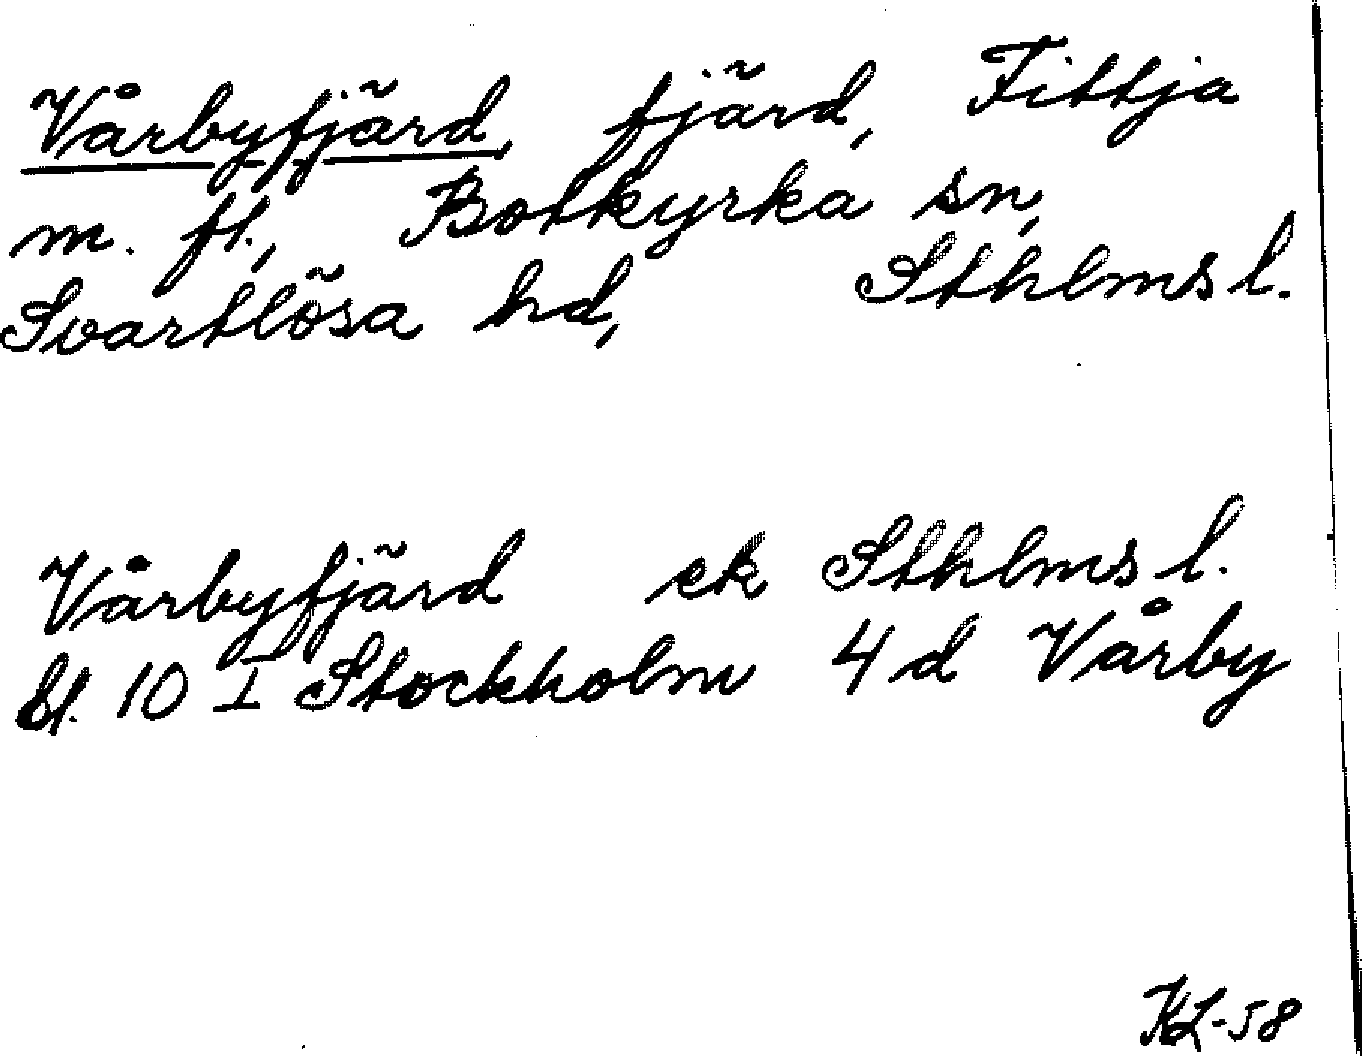 Vårbyfjärd, fjärd, Fittja
m. fl., Botkyrka sn,
Svartlösa hd, Sthlms l.
Vårbyfjärd ek Sthlms l.
bl. 10 I Stockholm 4 d Vårby
KL-58